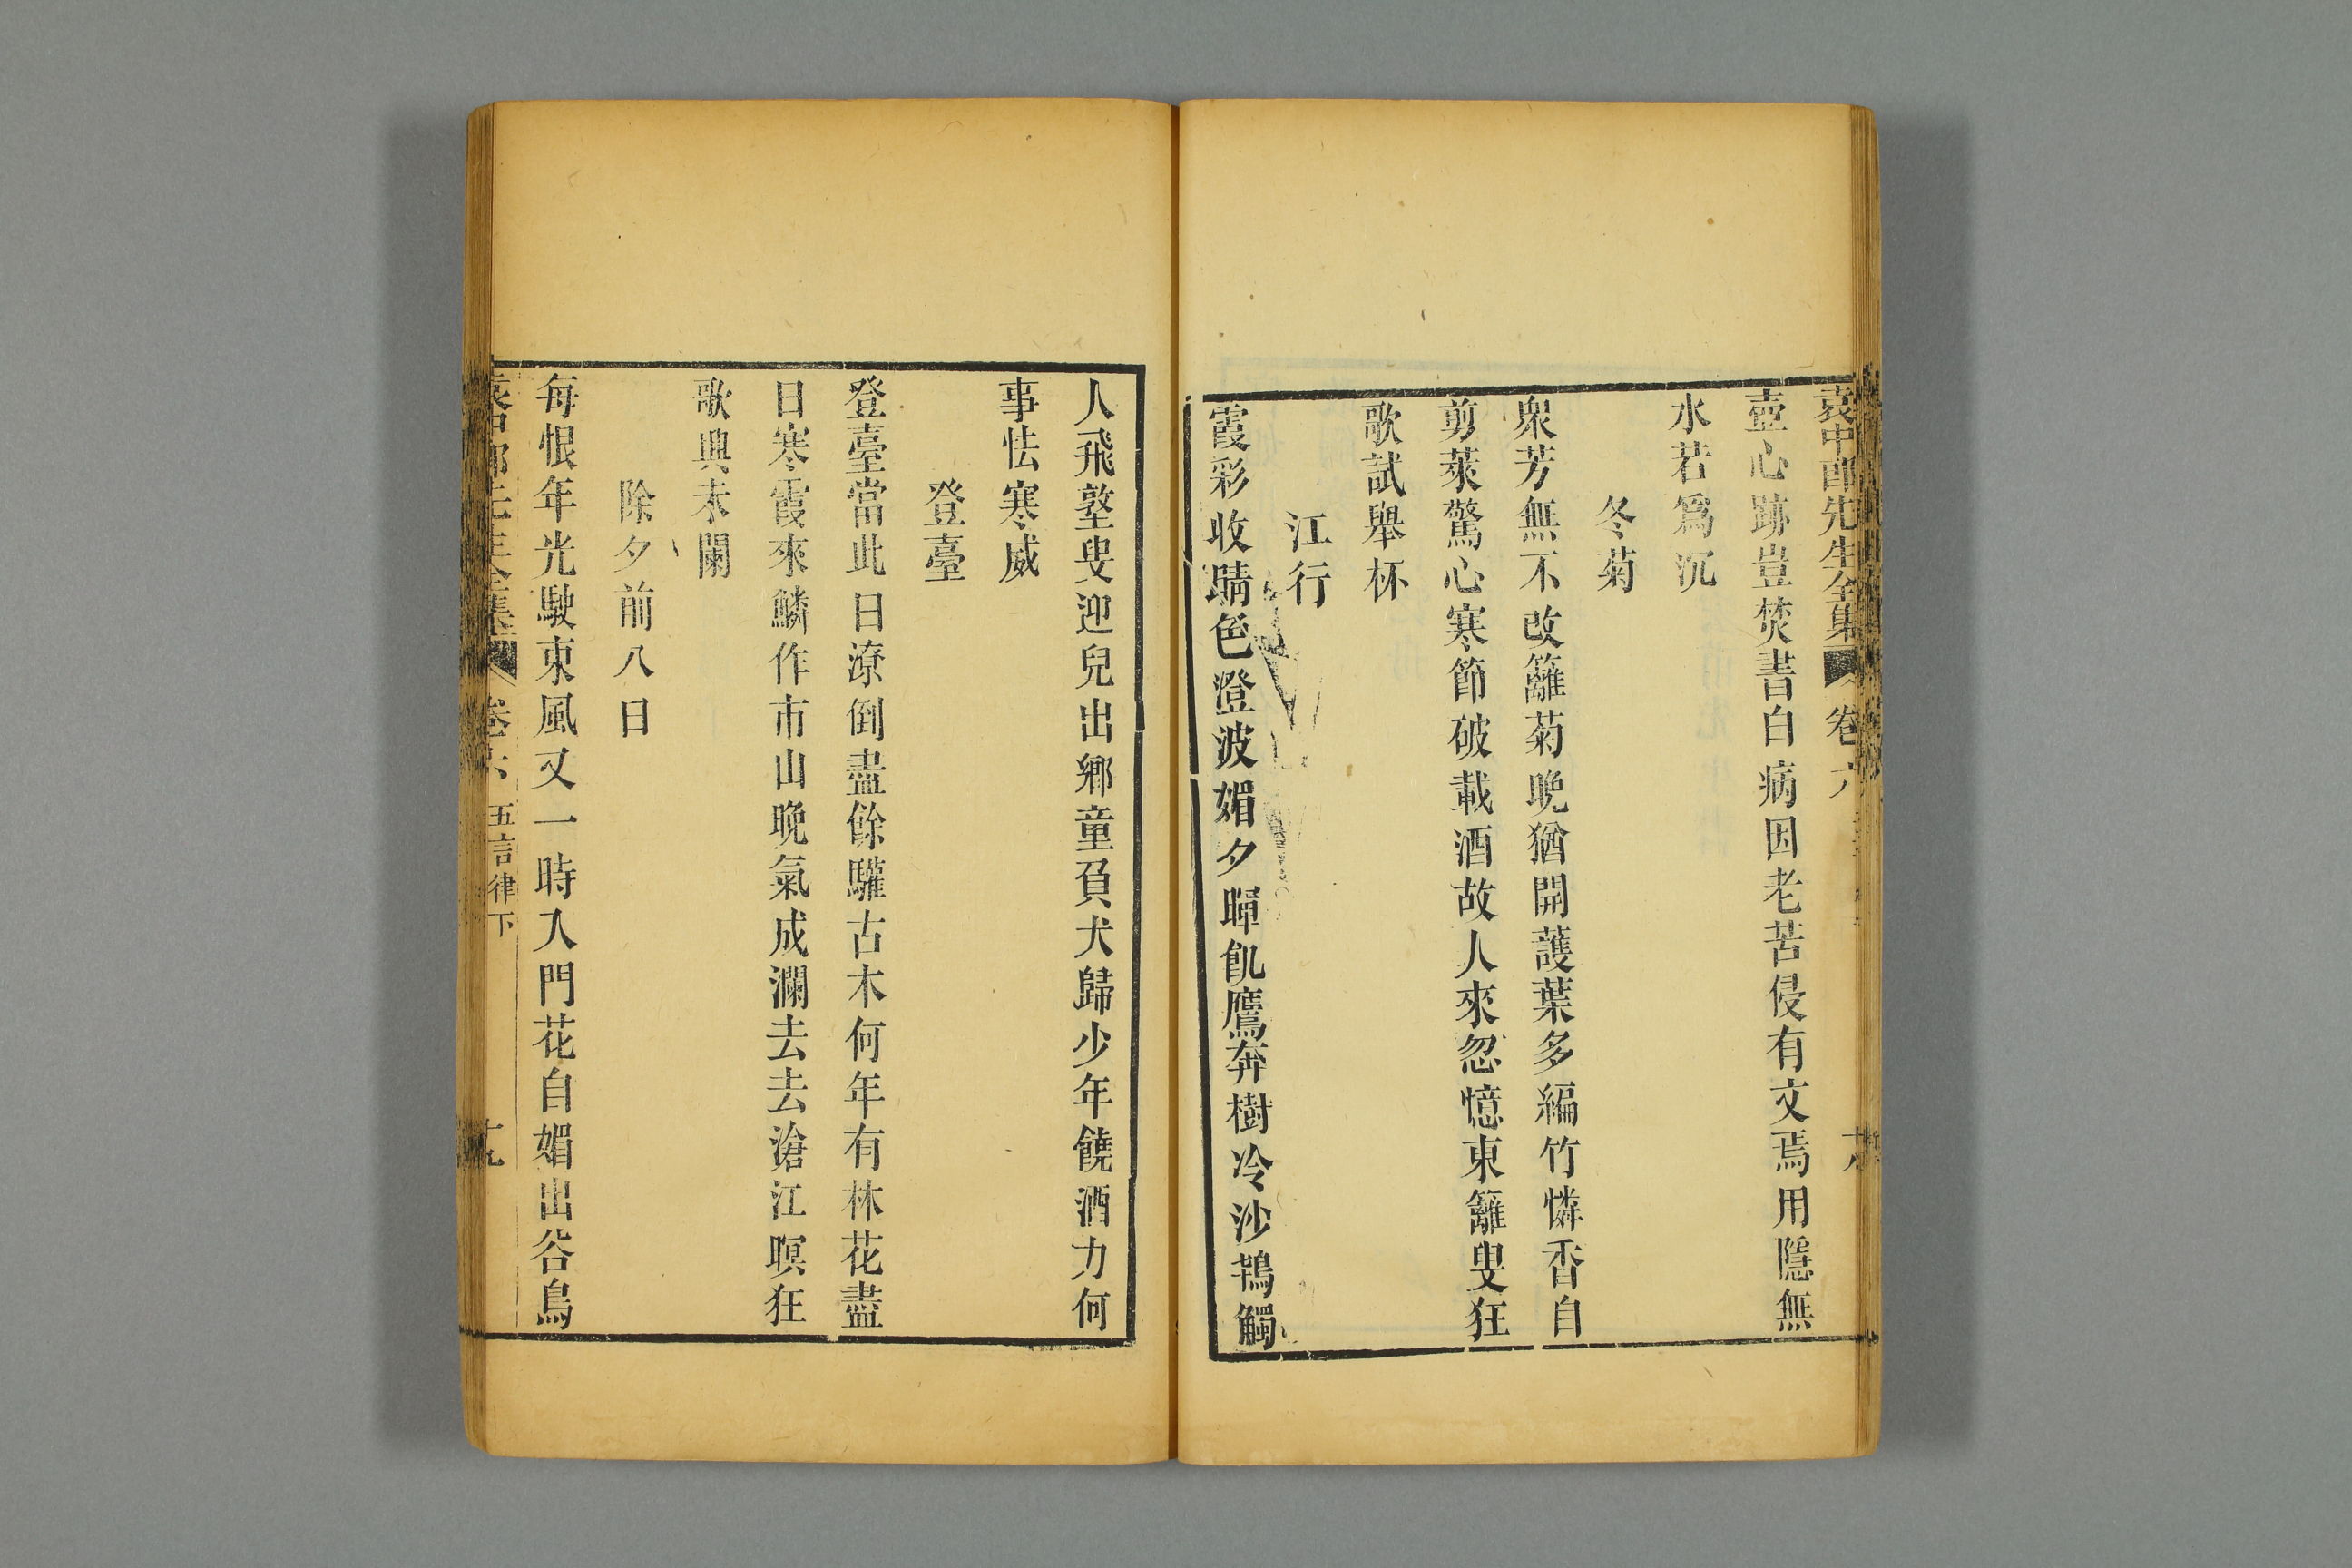 袁中郎先生全集 卷六 十八
壺心跡豈焚書白病因老苦侵有文焉用隱無
水若爲沉
冬菊
衆芳無不改籬菊晚猶開護葉多編竹憐香自
剪萊驚心寒節破載酒故人來忽憶東籬叟狂
歌試舉杯
江行
霞彩收晴色澄波媚夕暉飢鷹奔樹冷沙鵲觸
人飛塾叟迎兒出鄉童負犬歸少年饒酒力何
事怯寒威
登臺
登臺當此日潦倒盡餘驩古木何年有林花盡
日寒霞來鱗作市山晚氣成瀾去去滄江暝狂
歌興未闌
除夕前八日
每恨年光駛東風又一時入門花自媚出谷鳥
袁中郎先生全集 卷六 五言律下 十九